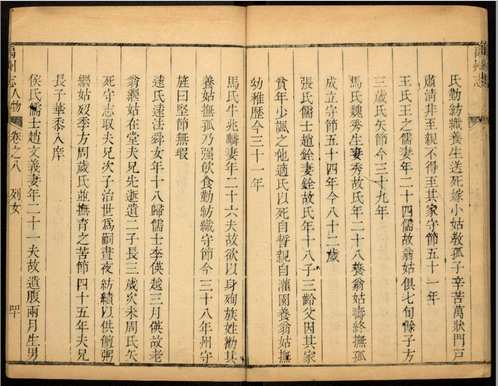 氏勤紡織養生送死嫁小姑教孤子辛苦萬狀門戶
肅清非至親不得至其家守節五十一年
王氏王之儒妻年二十四儒故翁姑俱七旬餘子方
三歲氏矢節三十九年
馮氏魏秀生妻秀故氏年二十八養翁姑壽終撫孤
成立守節五十四年今八十二歲
張氏儒士趙銓妻銓故氏年十八子三齡父因其家
貧年少諷之他適氏以死自誓親自灌園養翁姑撫
幼稚歷今三十一年
馬氏牛兆麟妻年二十六夫故欲以身殉族姓勸其
養姑撫孤乃強飲食勤紡織守節今三十八年州守
旌曰堅節無瑕
逯氏逯法舜女年十八歸儒士李偀越三月偀故老
翁繼姑在堂夫兄先逝遺二子長三歲次未周氏矢
死守志取夫兄次子治世爲嗣晝夜紡績以供粥
繼姑歿李方周歲氏並撫育之苦節四十五年夫兄
長子華黍入庠
侯氏儒士趙文義妻年二十一夫故遺腹兩月生男
州志人物 卷之八 列女